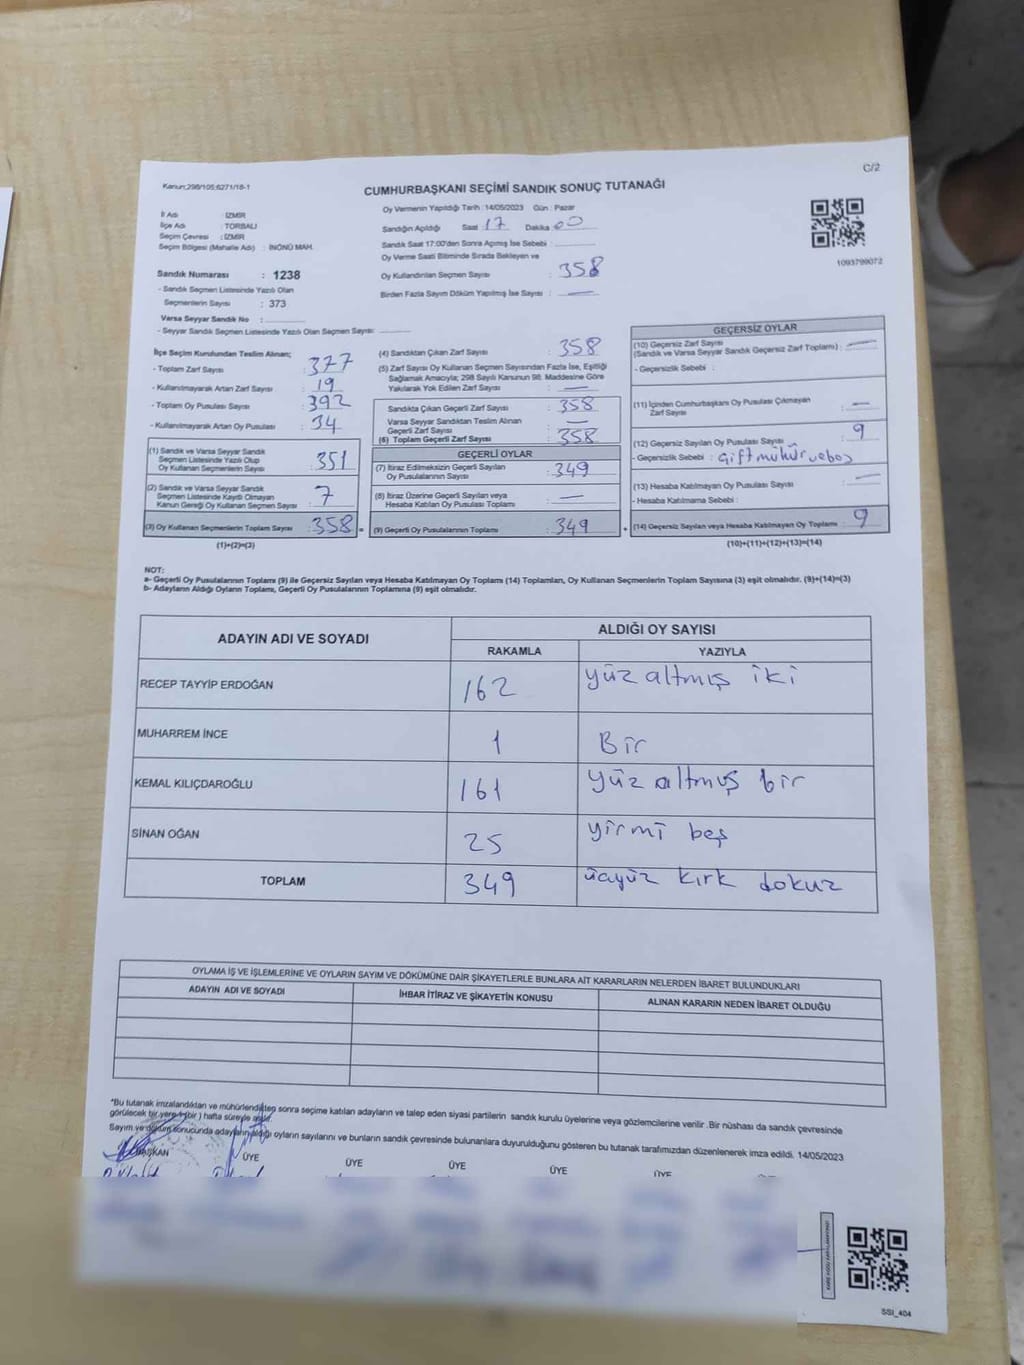 C/2
Kanun;298/105;6271/18-1
CUMHURBAŞKANI SEÇİMİ SANDIK SONUÇ TUTANAĞI
İl Adı : İZMİR
İlçe Adı : TORBALI
Seçim Çevresi : İZMİR
Seçim Bölgesi (Mahalle Adı) : İNÖNÜ MAH.
Oy Vermenin Yapıldığı Tarih : 14/05/2023 Gün : Pazar
Sandığın Açıldığı Saat 17 Dakika 00
Sandık Saat 17:00'den Sonra Açımış İse Sebebi :
Oy Verme Saati Bitiminde Sırada Bekleyen ve
Oy Kullandırılan Seçmen Sayısı : 358
Birden Fazla Sayım Döküm Yapılmış İse Sayısı : —
1093799072
Sandık Numarası : 1238
- Sandık Seçmen Listesinde Yazılı Olan
Seçmenlerin Sayısı : 373
Varsa Seyyar Sandık No :
- Seyyar Sandık Listesinde Yazılı Olan Seçmen Sayısı:
İlçe Seçim Kurulundan Teslim Alınan;
- Toplam Zarf Sayısı : 377
- Kullanılmayarak Artan Zarf Sayısı : 19
- Toplam Oy Pusulası Sayısı : 392
- Kullanılmayarak Artan Oy Pusulası : 34
(1) Sandık ve Varsa Seyyar Sandık
Seçmen Listesinde Yazılı Olup
Oy Kullanan Seçmenlerin Sayısı : 351
(2) Sandık ve Varsa Seyyar Sandık
Seçmen Listesinde Kaydı Olmayan
Kanun Gereği Oy Kullanan Seçmen Sayısı : 7
(3) Oy Kullanan Seçmenlerin Toplam Sayısı : 358 =
(1)+(2)=(3)
(4) Sandıktan Çıkan Zarf Sayısı : 358
(5) Zarf Sayısı Oy Kullanan Seçmen Sayısından Fazla İse, Eşitliği
Sağlamak Amacıyla; 298 Sayılı Kanunun 98. Maddesine Göre
Yakılarak Yok Edilen Zarf Sayısı : —
Sandıkta Çıkan Geçerli Zarf Sayısı : 358
Varsa Seyyar Sandıktan Teslim Alınan
Geçerli Zarf Sayısı : —
(6) Toplam Geçerli Zarf Sayısı : 358
GEÇERLİ OYLAR
(7) İtiraz Edilmeksizin Geçerli Sayılan
Oy Pusulasının Sayısı : 349
(8) İtiraz Üzerine Geçerli Sayılan veya
Hesaba Katılan Oy Pusulası Toplamı : —
(9) Geçerli Oy Pusulalarının Toplamı : 349 +
GEÇERSİZ OYLAR
(10) Geçersiz Zarf Sayısı
(Sandık ve Varsa Seyyar Sandık Geçersiz Zarf Toplamı) : —
- Geçersizlik Sebebi :
(11) İçinden Cumhurbaşkanı Oy Pusulası Çıkmayan
Zarf Sayısı : —
(12) Geçersiz Sayılan Oy Pusulası Sayısı : 9
- Geçersizlik Sebebi : Çift mühür ve boş
(13) Hesaba Katılmayan Oy Pusulası Sayısı : —
- Hesaba Katılmama Sebebi :
(14) Geçersiz Sayılan veya Hesaba Katılmayan Oy Toplamı : 9
(10)+(11)+(12)+(13)=(14)
NOT:
a- Geçerli Oy Pusulalarının Toplamı (9) ile Geçersiz Sayılan veya Hesaba Katılmayan Oy Toplamı (14) Toplamları, Oy Kullanan Seçmenlerin Toplam Sayısına (3) eşit olmalıdır. (9)+(14)=(3)
b- Adayların Aldığı Oyların Toplamı, Geçerli Oy Pusulalarının Toplamına (9) eşit olmalıdır.
ADAYIN ADI VE SOYADI ALDIĞI OY SAYISI
RAKAMLA YAZIYLA
RECEP TAYYİP ERDOĞAN 162 yüz altmış iki
MUHARREM İNCE 1 Bir
KEMAL KILIÇDAROĞLU 161 yüz altmış bir
SİNAN OĞAN 25 yirmi beş
TOPLAM 349 üçyüz kırk dokuz
OYLAMA İŞ VE İŞLEMLERİNE VE OYLARIN SAYIM VE DÖKÜMÜNE DAİR ŞİKAYETLERLE BUNLARA AİT KARARLARIN NELERDEN İBARET BULUNDUKLARI
ADAYIN ADI VE SOYADI İHBAR İTİRAZ VE ŞİKAYETİN KONUSU ALINAN KARARIN NEDEN İBARET OLDUĞU
*Bu tutanak imzalandıktan ve mühürlendikten sonra seçime katılan adayların ve talep eden siyasi partilerin sandık kurulu üyelerine veya gözlemcilerine verilir .Bir nüshası da sandık çevresinde
görülecek bir yere 1 (bir ) hafta süreyle asılır.
Sayım ve döküm sonucunda adayların aldığı oyların sayılarını ve bunların sandık çevresinde bulunanlara duyurulduğunu gösteren bu tutanak tarafımızdan düzenlenerek imza edildi. 14/05/2023
BAŞKAN ÜYE ÜYE ÜYE ÜYE ÜYE
SSI_404